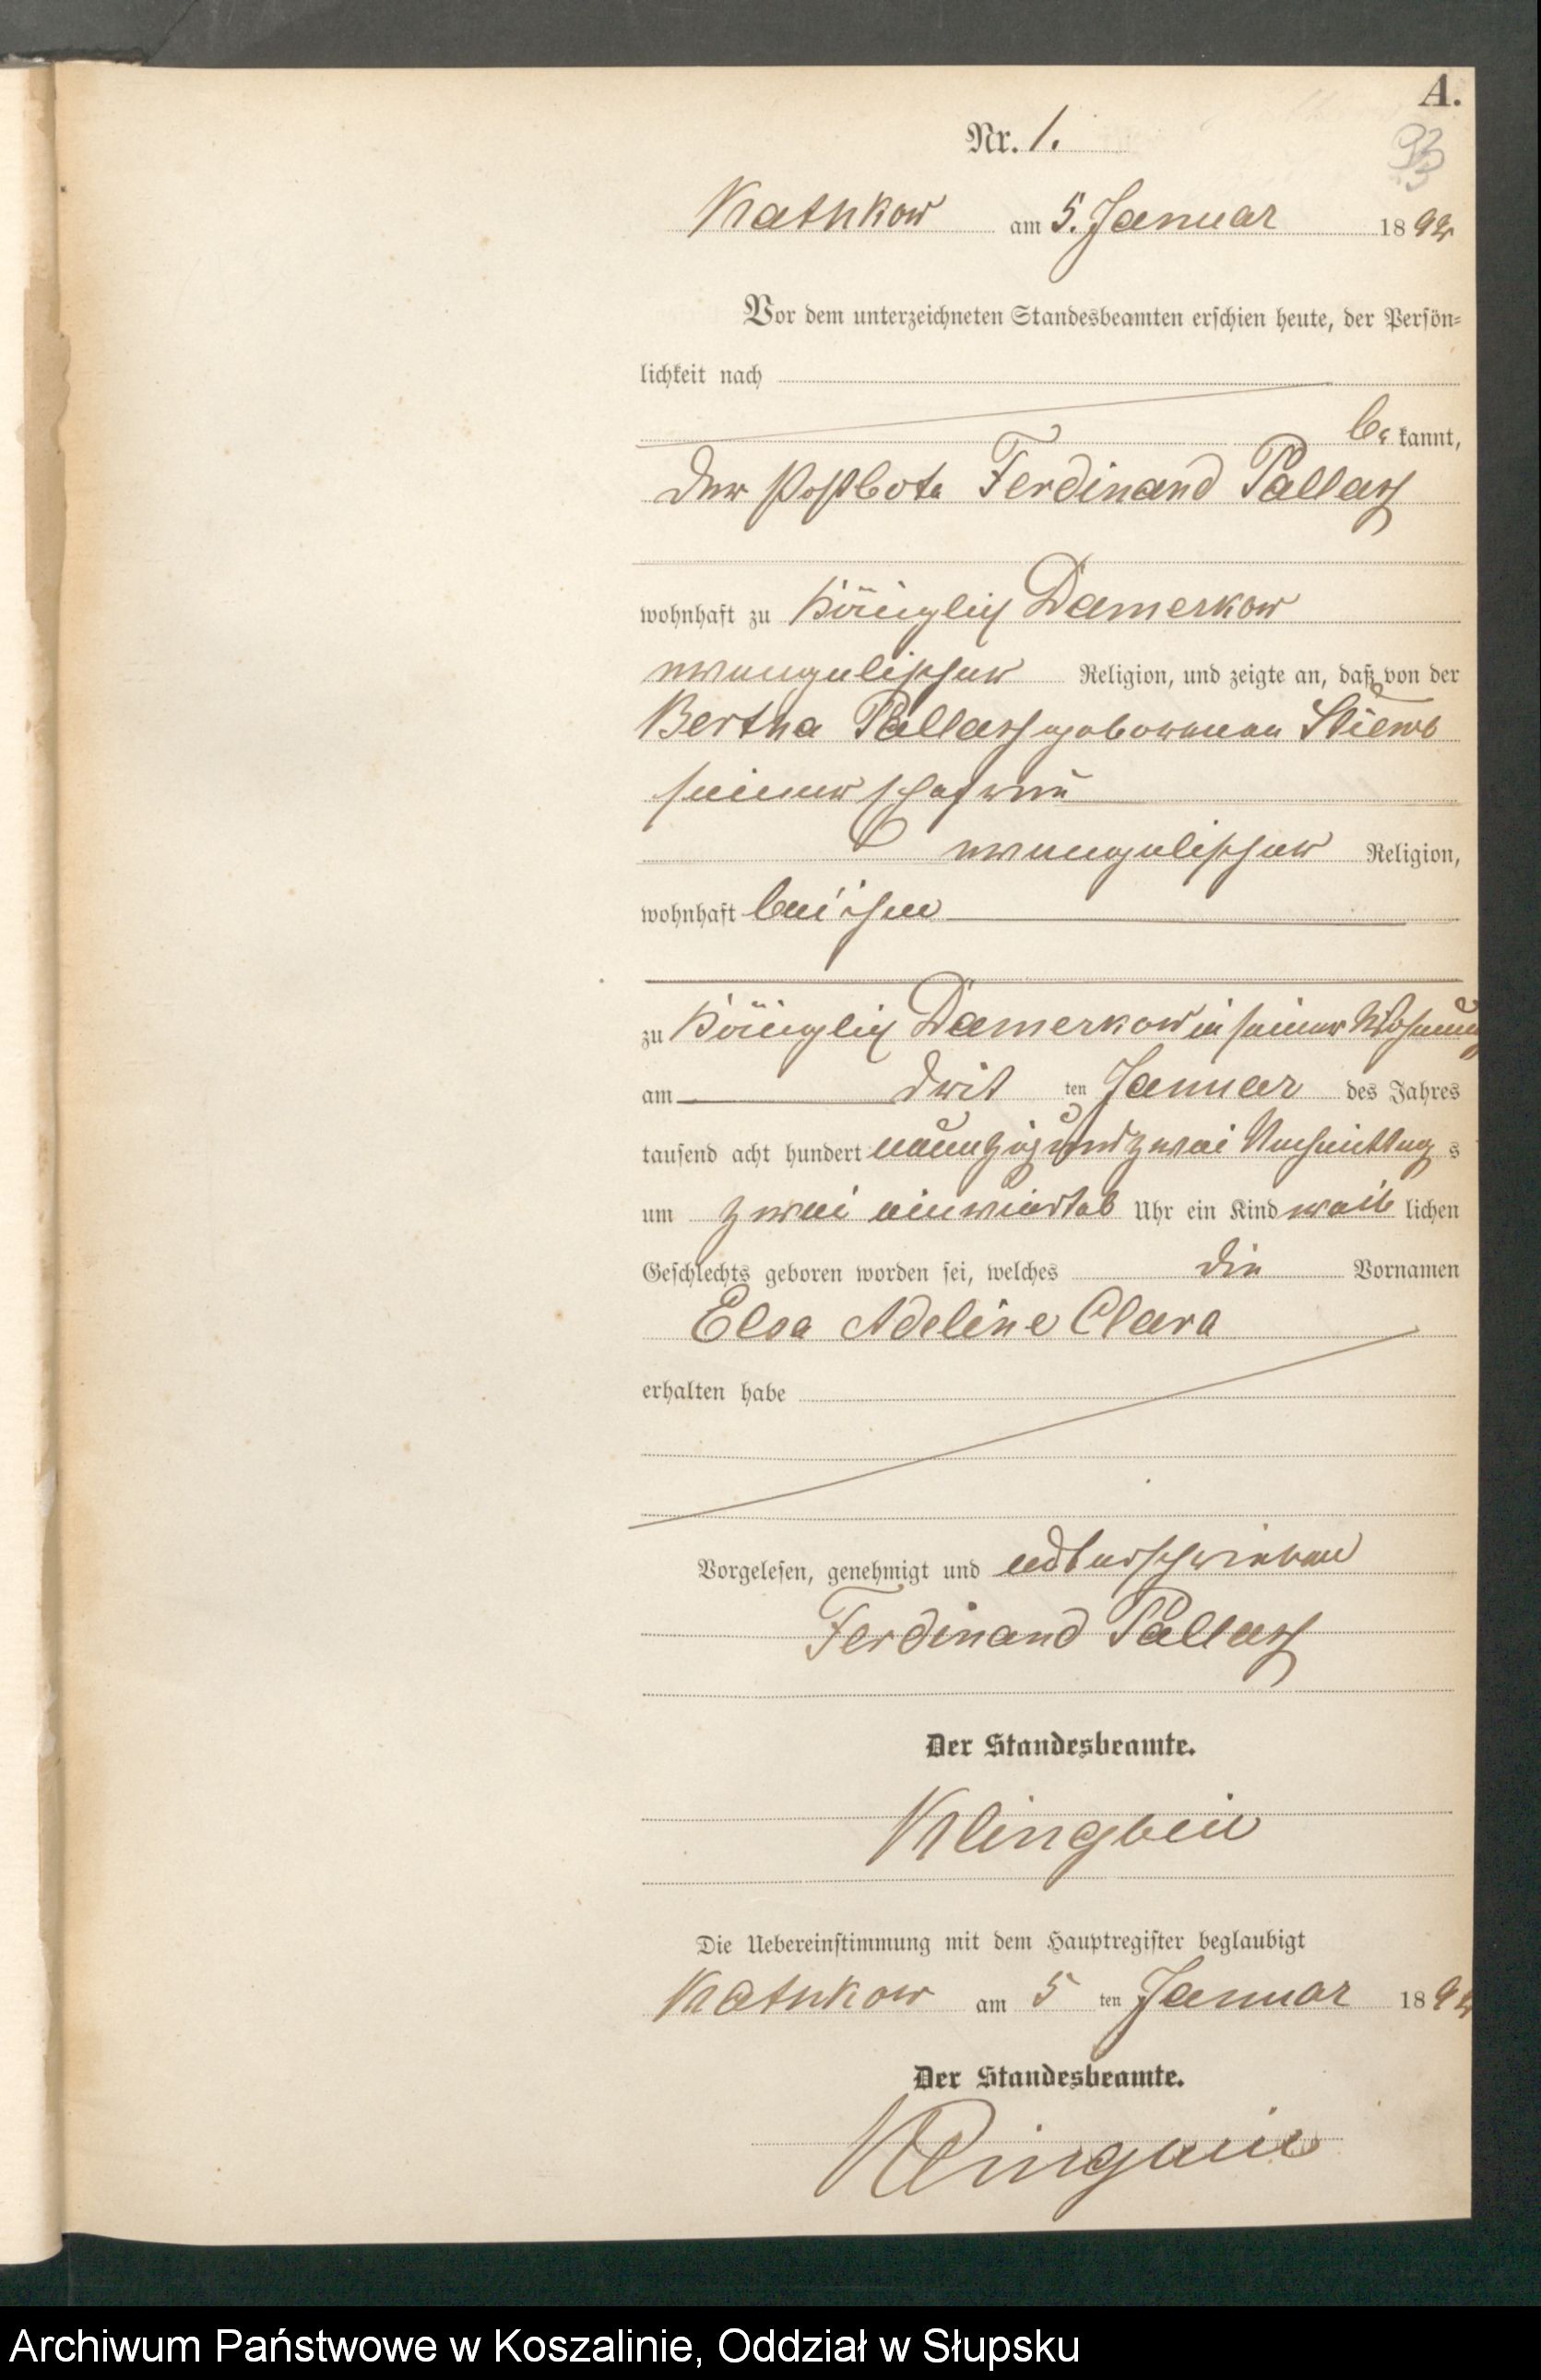 A.
Nr. 1.
93
Kathkow am 5. Januar 1892
Vor dem unterzeichneten Standesbeamten erschien heute, der Persön-
lichkeit nach
be kannt,
der Postbote Ferdinand Pallas
wohnhaft zu Königlich Damerkow
evangelischer Religion, und zeigte an, daß von der
Bertha Pallas geborenen
seiner Ehefrau
evangelischer Religion,
wohnhaft bei ihm
zu Königlich Damerkow in seiner Wohnung
am dritten Januar des Jahres
tausend acht hundert neunzig und zwei Nachmittags
um zwei einviertel Uhr ein Kind weiblichen
Geschlechts geboren worden sei, welches die Vornamen
Elsa Adeline Clara
erhalten habe
Vorgelesen, genehmigt und unterschrieben
Ferdinand Pallas
Der Standesbeamte.
Klingbeil
Die Uebereinstimmung mit dem Hauptregister beglaubigt
Kathkow am 5 ten Januar 1892
Der Standesbeamte.
Klingbeil
Archiwum Państwowe w Koszalinie, Oddział w Słupsku